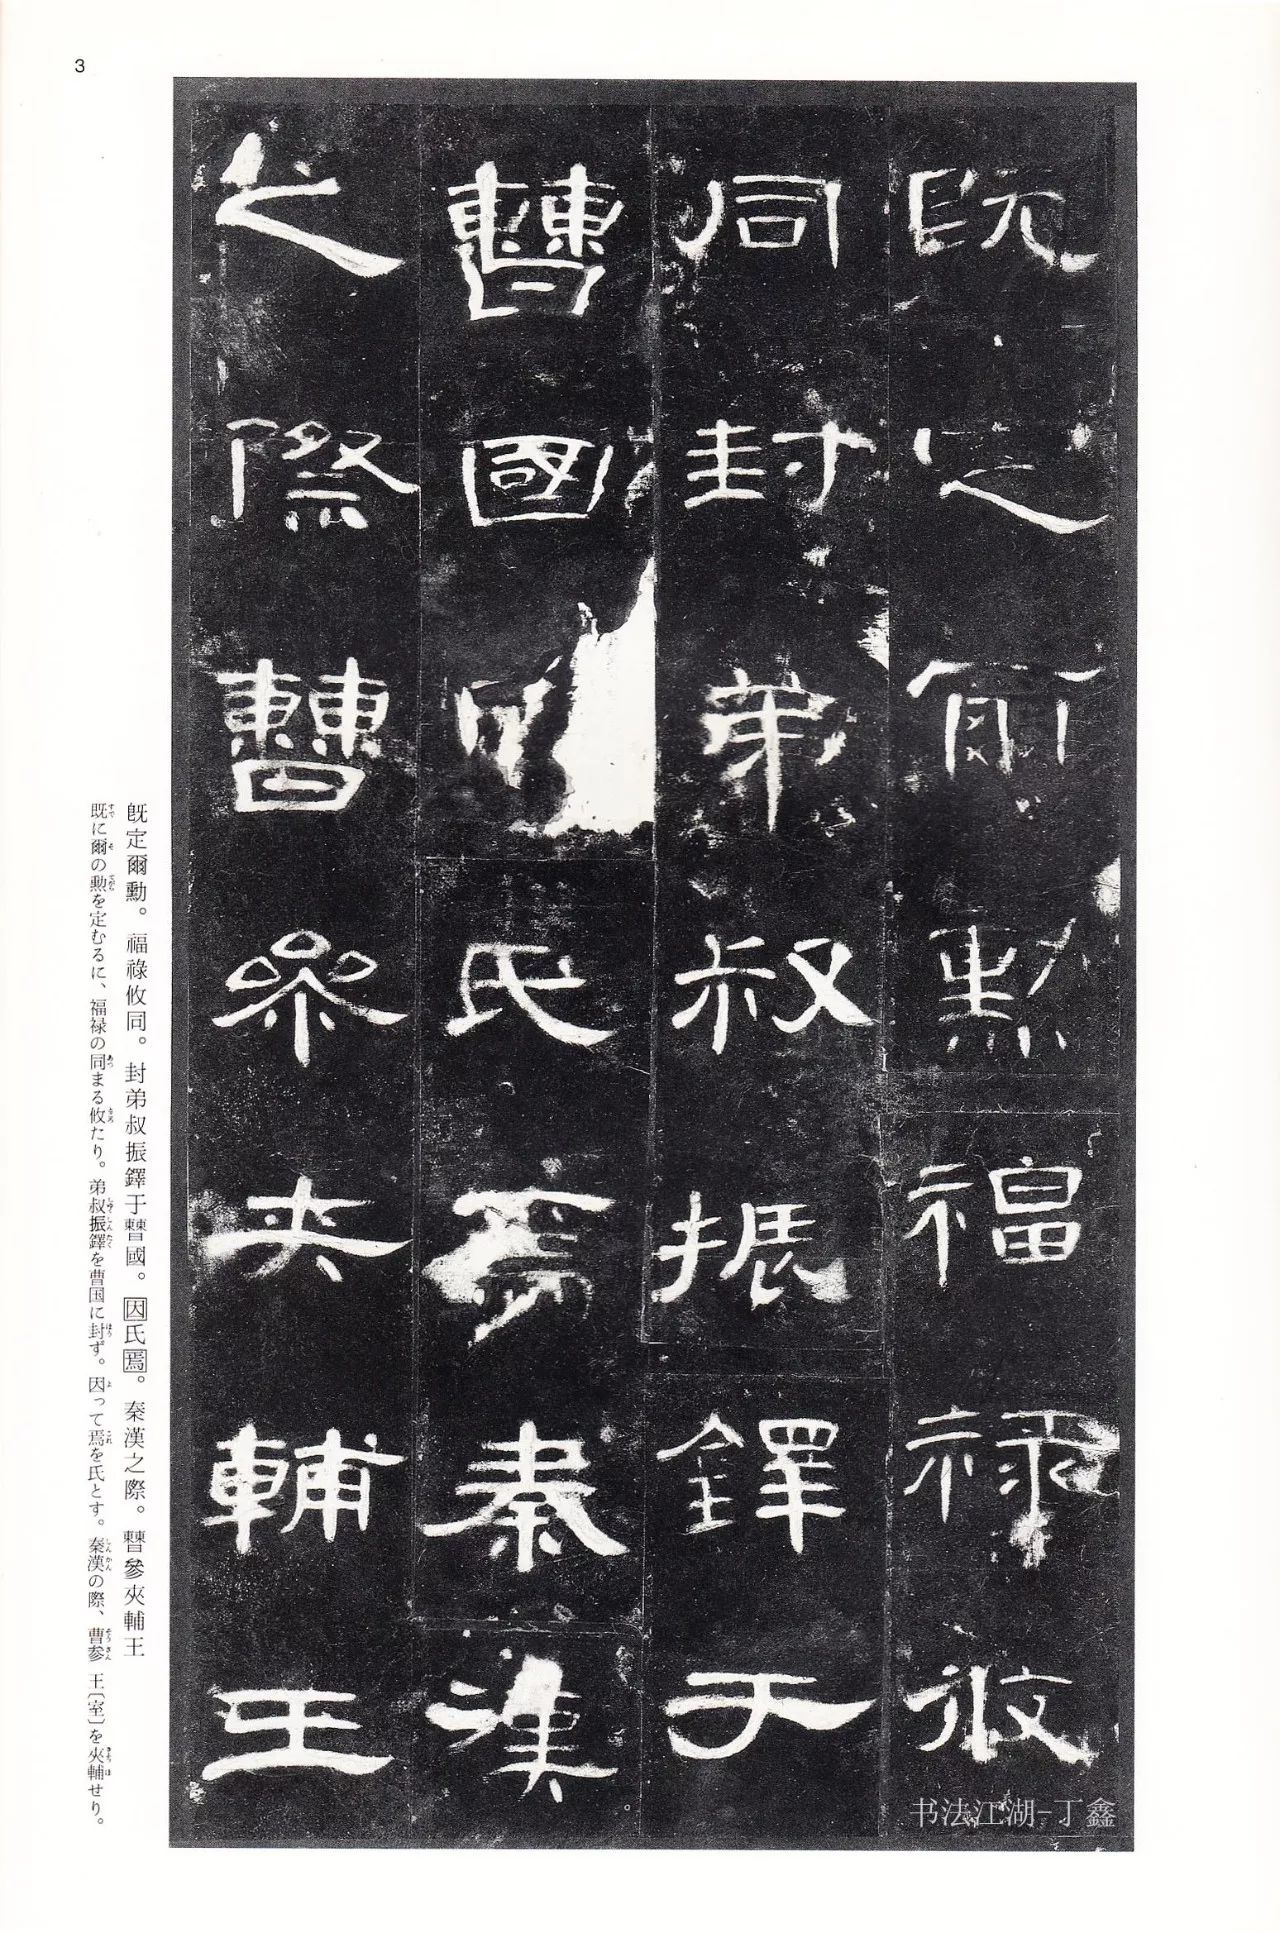 3
既定爾勲福祿攸
同封弟叔振鐸于
曹國因氏焉秦漢
之際曹參夾輔王
既定爾勲。福祿攸同。封弟叔振鐸于曹國。因氏焉。秦漢之際。曹參夾輔王
既に爾の勲を定むるに、福禄の同まる攸たり。弟叔振鐸を曹国に封ず。因って焉を氏とす。秦漢の際、曹参 王〔室〕を夾輔せり。
书法江湖-丁鑫